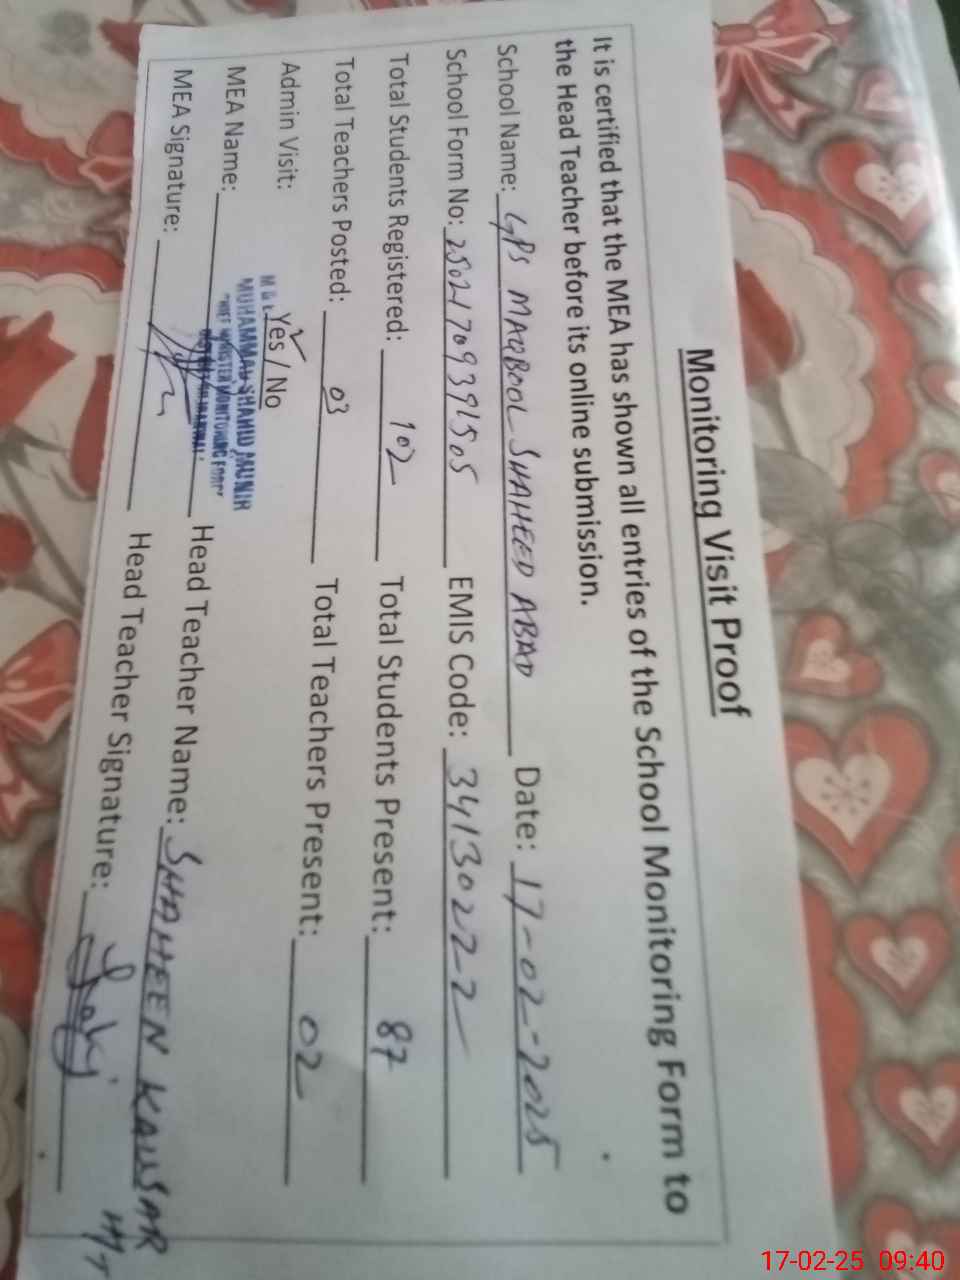 Monitoring Visit Proof
It is certified that the MEA has shown all entries of the School Monitoring Form to
the Head Teacher before its online submission.
School Name: GPS MAQBOOL SHAHEED ABAD Date: 17-02-2025
School Form No: 25021709391505 EMIS Code: 34130222
Total Students Registered: 102 Total Students Present: 87
Total Teachers Posted: 03 Total Teachers Present: 02
Admin Visit: Yes / No
MUHAMMAD SHAHID MUNIR
CHIEF MINISTER MONITORING FORCE
MEA Name: Head Teacher Name: SHAHEEN KAUSAR
MEA Signature: Head Teacher Signature:
17-02-25 09:40